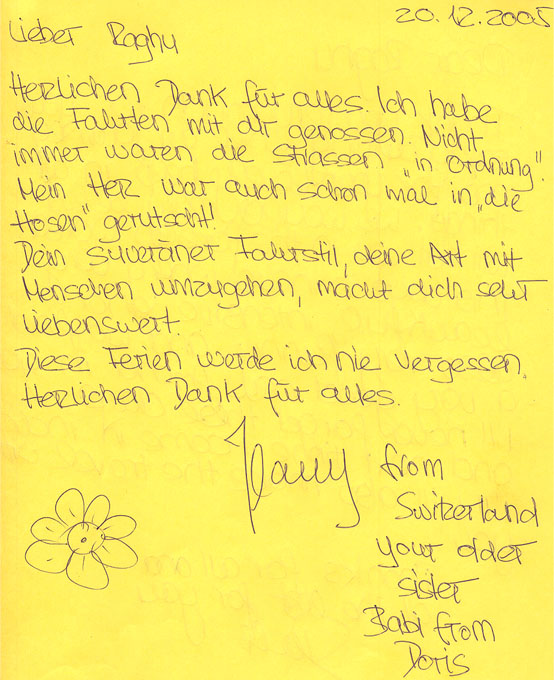 20.12.2005
Lieber Raghu
Herzlichen Dank für alles. Ich habe
die Fahrten mit dir genossen. Nicht
immer waren die Strassen „in Ordnung".
Mein Herz war auch schon mal in „die
Hosen" gerutscht!
Dein suveräner Fahrstil, deine Art mit
Menschen umzugehen, macht dich sehr
liebenswert.
Diese Ferien werde ich nie vergessen.
Herzlichen Dank für alles.
from
Switzerland
your older
sister
Babi from
Doris